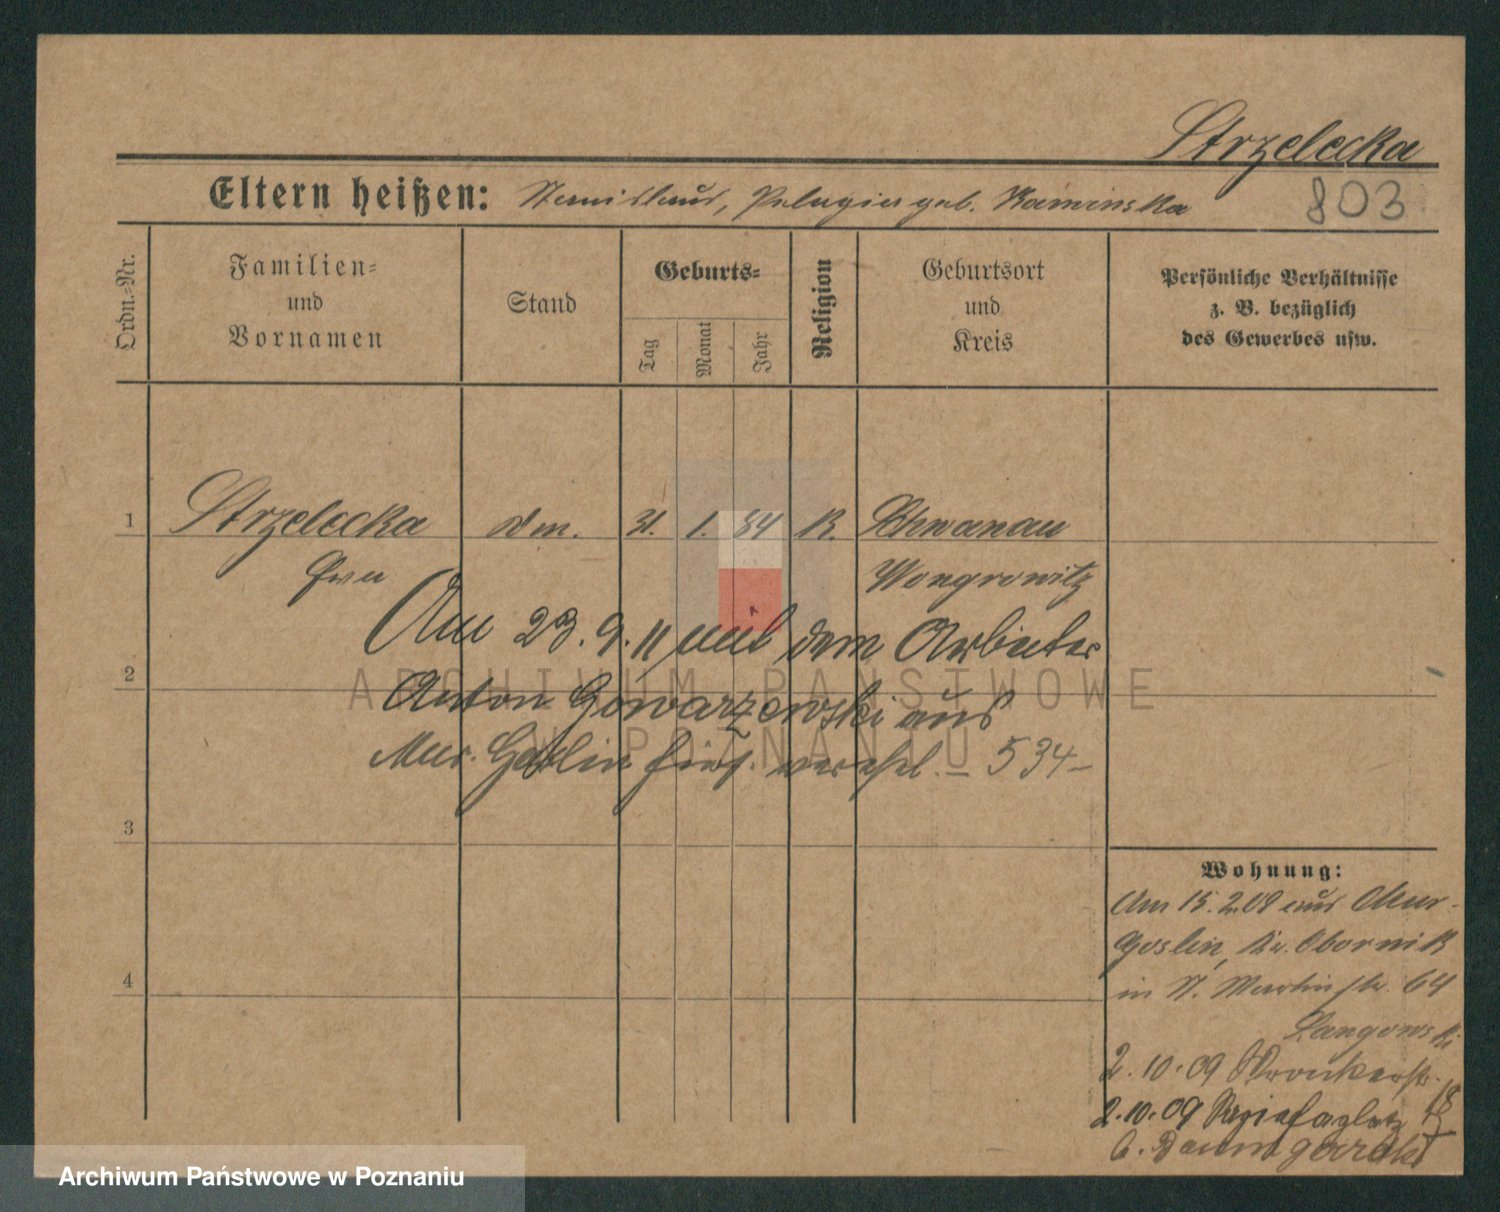 Strzelecka
Eltern heißen: Stanislaus, Pelagia geb. Kaminska
803
Ordn.-Nr.
Familien-
und
Vornamen
Stand
Geburts-
Tag
Monat
Jahr
Religion
Geburtsort
und
Kreis
Persönliche Verhältnisse
z. B. bezüglich
des Gewerbes usw.
1 Strzelecka 31. 1. 84 K. Schwanau
Eva Wongrowitz
Am 23.9.11 mit dem Arbeiter
2
Anton Gowarzewski aus
Mur. Goslin hies. verehel. – 534 –
3
4
Wohnung:
Am 15.2.09 aus Mur.-
Goslin, Kr. Obornik
in St. Martinstr. 64
Langowski
2.10.09 Wronkerstr.
2.10.09 18
b. Baumgardt
ARCHIWUM PAŃSTWOWE
W POZNANIU
Archiwum Państwowe w Poznaniu